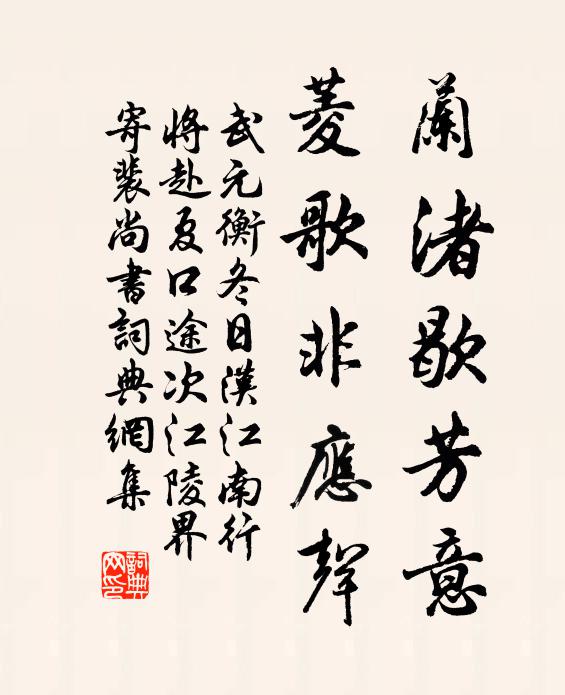 蘭渚歇芳意
菱歌非應聲
武元衡冬日漢江南行
將赴夏口途次江陵界
寄裴尚書詞典網集
詞典
网印